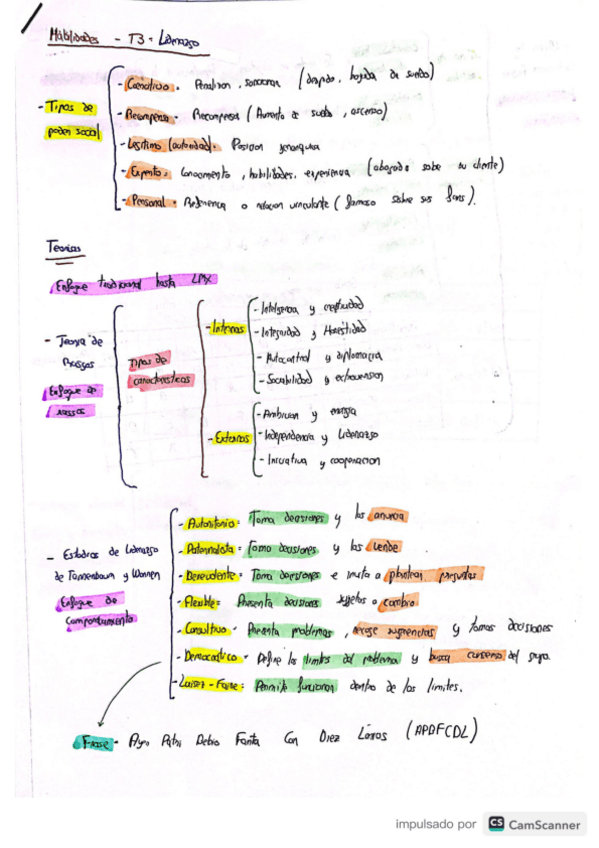 Habilidades - T3 - Liderazgo
- Tipos de poder social
- Coercitivo. Penalizar, sancionar (despido, bajada de sueldo)
- Recompensa - Recompensa (Aumento de sueldo, ascenso)
- Legítimo (autoridad). Posicion jerarquica
- Experto: Conocimiento, habilidades, experiencia (abogado sobre su cliente)
- Personal = Referencia o relacion vinculante (famoso sobre sus fans).
Teorias
Enfoque tradicional hasta
- Teoria de Rasgos
Enfoque de
Tipos de caracteristicas
- Internas
- Inteligencia y
- Integridad y Honestidad
- Autocontrol y diplomacia
- Sociabilidad y extraversion
- Externas
- Ambicion y energia
- Independencia y Liderazgo
- Iniciativa y cooperacion
- Estudios de Liderazgo de Tannenbaum y
Enfoque de comportamiento
- Autoritario = Toma decisiones y las anuncia
- Paternalista = Toma decisiones y las vende
- Toma decisiones e invita a plantear preguntas
- Flexible = Presenta decisiones sujetas a cambio
- Consultivo - Presenta problemas, recoge sugerencias y tomas decisiones
- Democratico - Define los limites del problema y busca consenso del grupo.
- Permite funcionar dentro de los limites.
Frase - Fanta Con Diez (APDFCDL)
impulsado por CS CamScanner